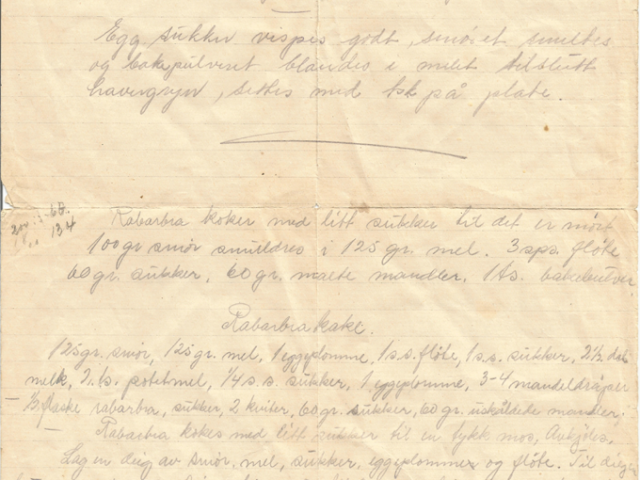 Egg, sukker vispes godt, smøret smeltes
og bakepulveret blandes i melet tilslutt
havregryn, settes med tsk på plate.
Rabarbra koker med litt sukker til det er mørt
100 gr smør smuldres i 125 gr. mel. 3 sps. fløte
60 gr. sukker, 60 gr. malte mandler, 1 ts. bakepulver
Rabarbrakake.
125 gr. smør, 125 gr. mel, 1 eggeplomme, 1 s.s. fløte, 1 s.s. sukker, 2½ del
melk, 2 ts. potetmel, 1/4 s.s. sukker, 1 eggeplomme, 3-4 mandeldråper
½ flaske rabarbra, sukker, 2 hviter, 60 gr. sukker, 60 gr. uskildede mandler.
Rabarbra kokes med litt sukker til en tykk mos, Avkjøles.
Lag en deig av smør, mel, sukker, eggeplommer og fløte. Til